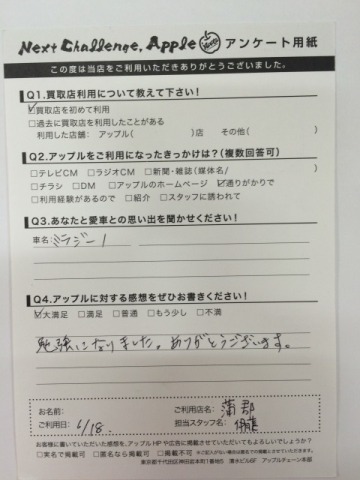 Next Challenge, Apple アンケート用紙
この度は当店をご利用いただきありがとうございました。
Q1.買取店利用について教えて下さい!
☑買取を初めて利用
□過去に買取店を利用したことがある
利用した店舗: アップル( )店 その他( )
Q2.アップルをご利用になったきっかけは?(複数回答可)
□テレビCM □ラジオCM □新聞・雑誌(媒体名/ )
□チラシ □DM □アップルのホームページ ☑通りがかりで
□利用経験があるので □紹介 □スタッフに誘われて
Q3.あなたと愛車との思い出を聞かせください!
車名: ミラジーノ
Q4.アップルに対する感想をぜひお書きください!
☑大満足 □満足 □普通 □もう少し □不満
勉強になりました。ありがとうございます。
お名前: ご利用店名: 蒲郡
ご利用日: 6/18 担当スタッフ名: 伊藤
お客様に書いていただいた感想を、アップルHPや広告に掲載させていただいてもよろしいでしょうか?
□実名で掲載可 □匿名なら掲載可 □掲載不可 ※ご記入がない場合は匿名での掲載とさせていただきます。
東京都千代田区神田岩本町1番地5 清水ビル6F アップルチェーン本部